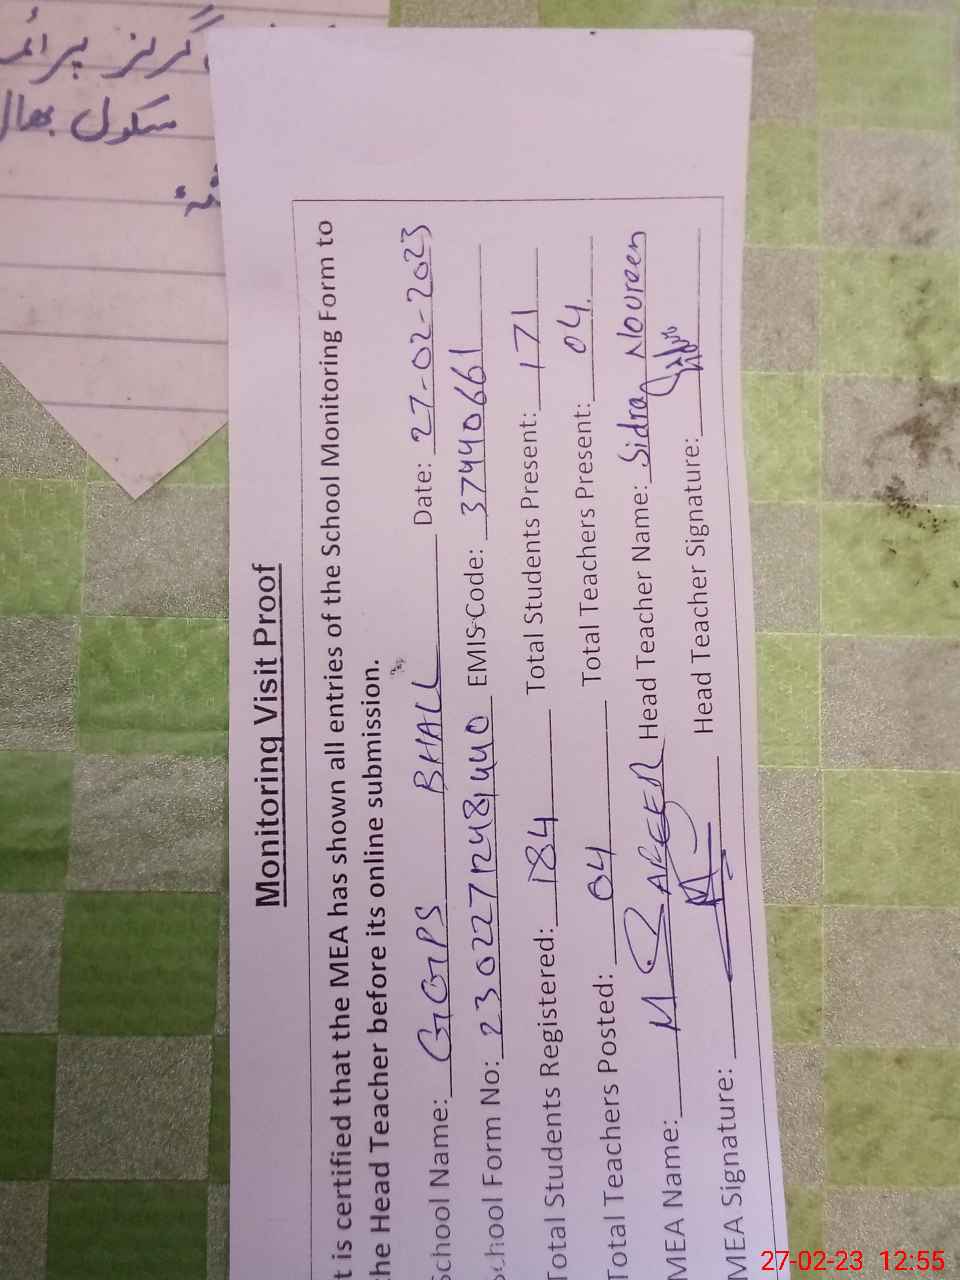 گرلز پرائمر
سکول بھال
Monitoring Visit Proof
t is certified that the MEA has shown all entries of the School Monitoring Form to
he Head Teacher before its online submission.
School Name: GGPS BHALL Date: 27-02-2023
School Form No: 23022712481440 EMIS Code: 37440661
Total Students Registered: 184 Total Students Present: 171
Total Teachers Posted: 04 Total Teachers Present: 04
MEA Name: M Head Teacher Name: Sidra Noureen
MEA Signature: Head Teacher Signature:
27-02-23 12:55